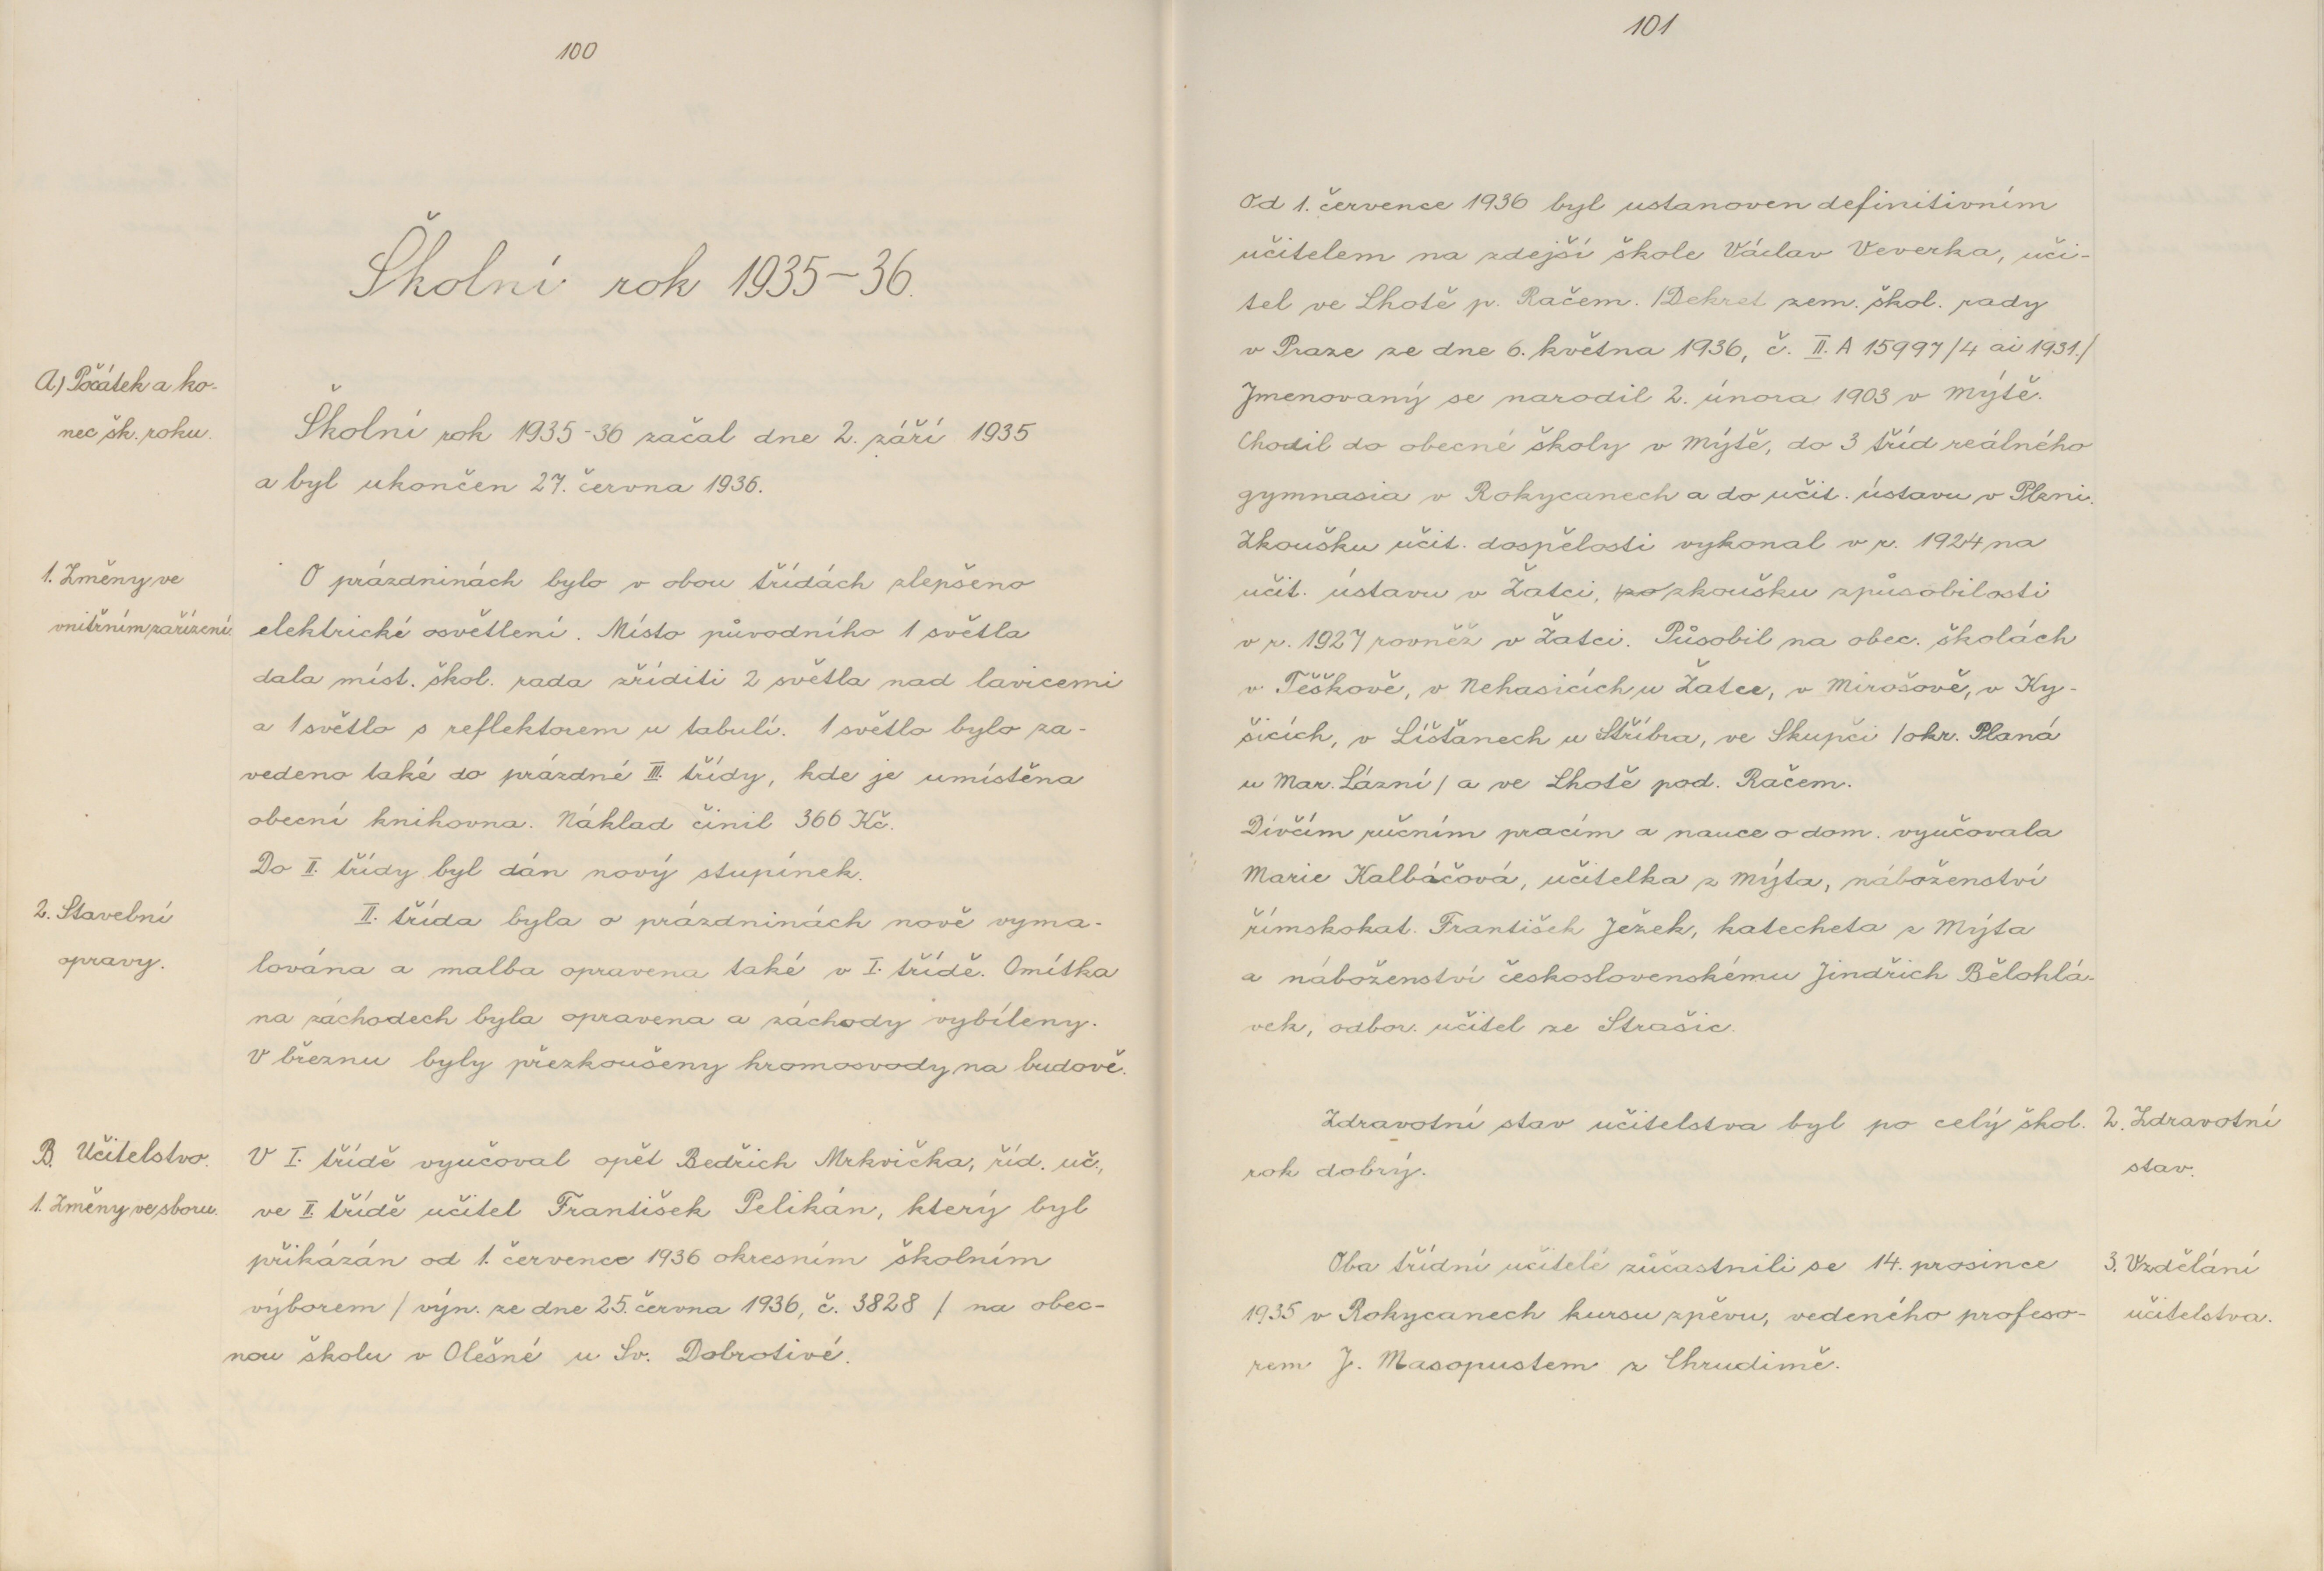 100
Školní rok 1935-36.
A) Počátek a ko-
nec šk. roku.
Školní rok 1935-36 začal dne 2. září 1935
a byl ukončen 27. června 1936.
1. Změny ve
vnitřním zařízení.
O prázdninách bylo v obou třídách zlepšeno
elektrické osvětlení. Místo původního 1 světla
dala míst. škol. rada zříditi 2 světla nad lavicemi
a 1 světlo s reflektorem u tabuli. 1 světlo bylo za-
vedeno také do prázdné III. třídy, kde je umístěna
obecní knihovna. Náklad činil 366 Kč.
Do II. třídy byl dán nový stupínek.
2. Stavební
opravy.
II. třída byla o prázdninách nově vyma-
lována a malba opravena také v I. třídě. Omítka
na záchodech byla opravena a záchody vybíleny.
V březnu byly přezkoušeny hromosvody na budově.
B. Učitelstvo.
1. Změny ve sboru.
V I. třídě vyučoval opět Bedřich Mrkvička, říd. uč.,
ve II. třídě učitel František Pelikán, který byl
přikázán od 1. července 1936 okresním školním
výborem / výn. ze dne 25. června 1936, č. 3828 / na obec-
nou školu v Olešné u Sv. Dobrotivé.
101
Od 1. července 1936 byl ustanoven definitivním
učitelem na zdejší škole Václav Veverka, uči-
tel ve Lhotě p. Račem. /Dekret zem. škol. rady
v Praze ze dne 6. května 1936, č. II. A 15997/4 ai 1931./
Jmenovaný se narodil 2. února 1903 v Mýtě.
Chodil do obecné školy v Mýtě, do 3 tříd reálného
gymnasia v Rokycanech a do učit. ústavu v Plzni.
Zkoušku učit. dospělosti vykonal v r. 1924 na
učit. ústavu v Žatci, zkoušku způsobilosti
v r. 1927 rovněž v Žatci. Působil na obec. školách
v Těškově, v Nehasicích u Žatce, v Mirošově, v Ky-
šicích, v Líšťanech u Stříbra, ve Skupči /okr. Planá
u Mar. Lázní / a ve Lhotě pod. Račem.
Dívčím ručním pracím a nauce o dom. vyučovala
Marie Kalbáčová, učitelka z Mýta, náboženství
římskokat. František Ježek, katecheta z Mýta
a náboženství československému Jindřich Bělohlá-
vek, odbor. učitel ze Strašic.
Zdravotní stav učitelstva byl po celý škol.
rok dobrý.
2. Zdravotní
stav.
Oba třídní učitelé zůčastnili se 14. prosince
1935 v Rokycanech kursu zpěvu, vedeného profeso-
rem J. Masopustem z Chrudimě.
3. Vzdělání
učitelstva.